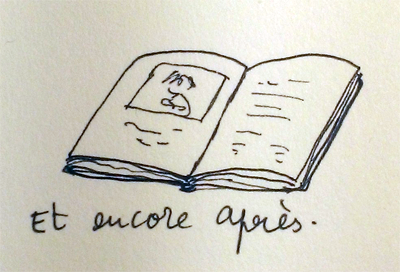 Et encore après.